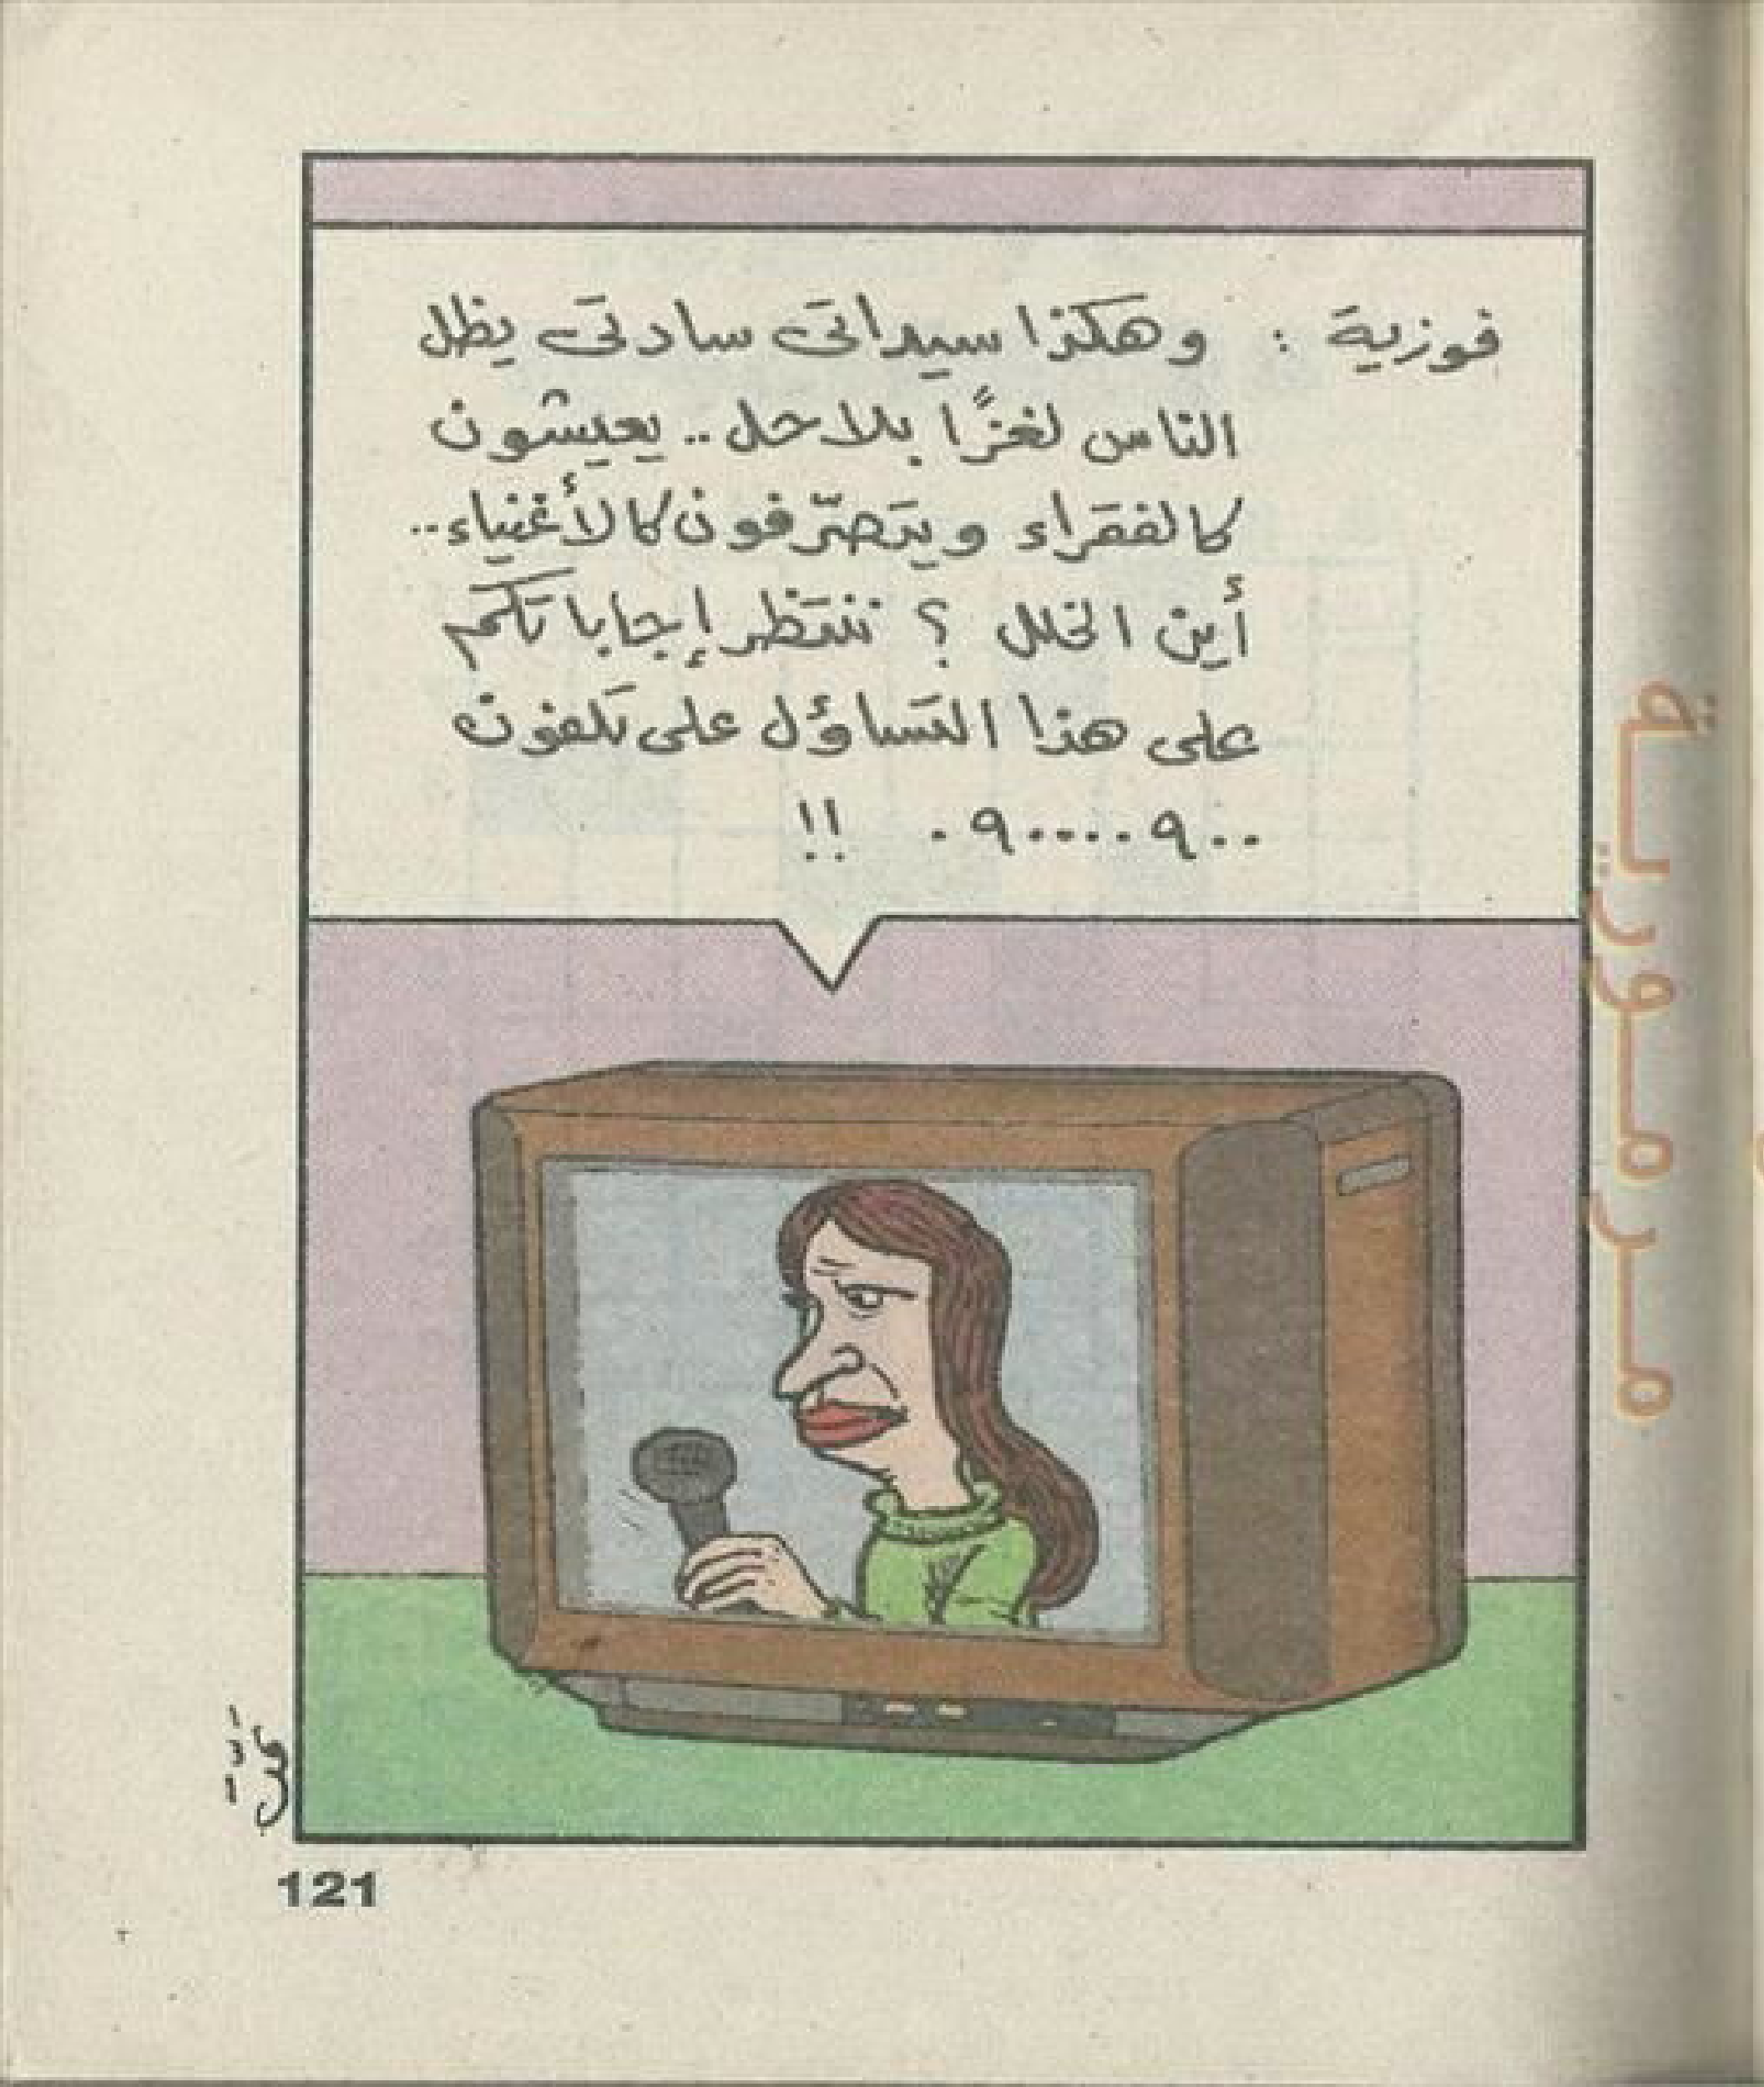 فوزية : وهكذا سيداتى سادتى يظل
الناس لغزًا بلا حل .. يعيشون
كالفقراء ويتصرّفون كالأغنياء ..
أين الخلل ؟ ننتظر إجاباتكم
على هذا التساؤل على تلفون
٠٩٠٠٠٠٩٠٠ !!
مرمورية
121